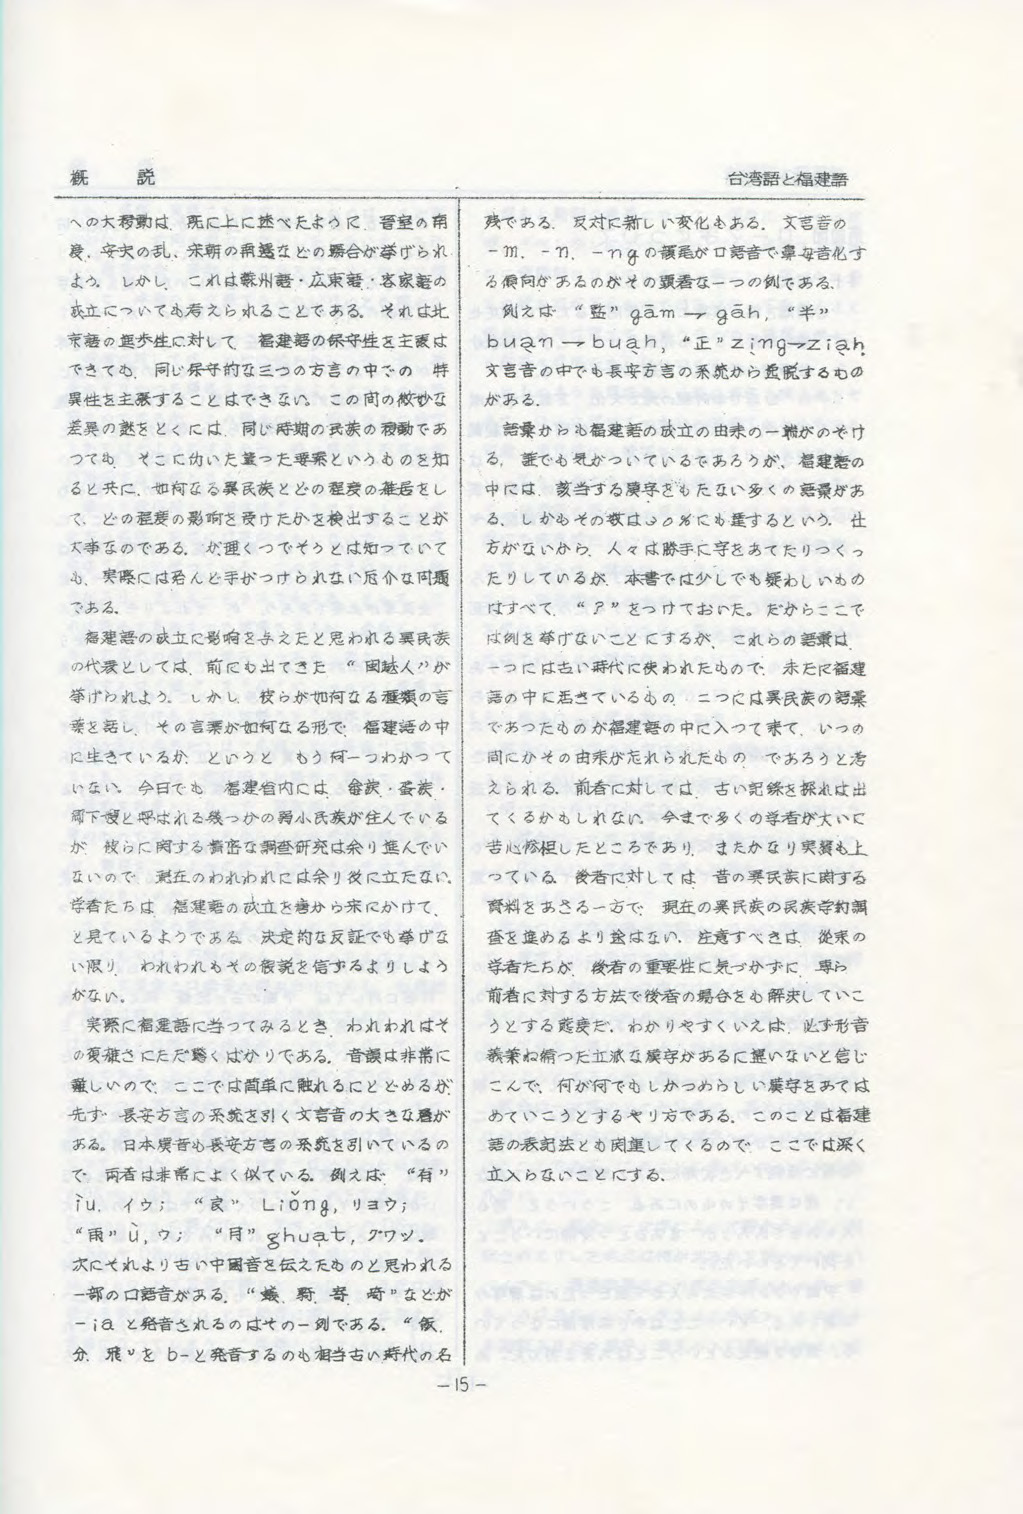 概　　説
台湾語と福建語
への大移動は，既に上に述べたように，晋室の南
渡，安史の乱，宋朝の南遷などの場合が挙げられ
よう。しかし，これは蘇州語・広東語・客家語の
成立についても考えられることである。それは北
京語の進歩性に対して，福建語の保守性を主張は
できても，同じ保守的な三つの方言の中での，特
異性を主張することはできない。この間の微妙な
差異の謎をとくには，同じ時期の民族の移動であ
つても，そこに働いた違った要素というものを知
ると共に，如何なる異民族とどの程度の雑居をし
て，どの程度の影响を受けたかを検出することが
大事なのである。が，理くつでそうとは知っていて
も，実際には殆んど手がつけられない厄介な問題
である。
福建語の成立に影响を与えたと思われる異民族
の代表としては，前にも出てきた，“閩越人”が
挙げられよう。しかし，彼らが如何なる種類の言
葉を話し，その言葉が如何なる形で，福建語の中
に生きているか，というと，もう何一つわかつて
いない。今日でも，福建省内には，畲族・蛋族・
郎下獲と呼ばれる幾つかの弱小民族が住んでいる
が，彼らに関する精密な調査研究は余り進んでい
ないので，現在のわれわれには余り役に立たない。
学者たちは，福建語の成立を唐から宋にかけて，
と見ているようである。決定的な反証でも挙げな
い限り，われわれもその仮説を信ずるよりしよう
がない。
実際に福建語に当ってみるとき，われわれはそ
の複雑さにただ驚くばかりである。音韻は非常に
難しいので，ここでは簡単に触れるにとどめるが，
先ず，長安方言の系統を引く文言音の大きな層が
ある。日本漢音も長安方言の系統を引いているの
で，両者は非常によく似ている。例えば，“有”
ǐu，イウ；“良”Liǒng，リョウ；
“雨”ǔ，ウ；“月”ghuat，クワッ。
次にそれより古い中国音を伝えたものと思われる
一部の口語音がある。“蟻，騎，寄，崎”などが
-iaと発音されるのはその一例である。“飯，
分，飛”をb-と発音するのも相当古い時代の名
残である。反対に新しい変化もある。文言音の
-m，-n，-ngの韻尾が口語音で鼻母音化す
る傾向があるのがその顕著な一つの例である。
例えば，“監”gām→gāh，“半”
buan→buah，“正”zing→ziah。
文言音の中でも長安方言の系統から逸脱するもの
がある。
語彙からも福建語の成立の由来の一端がのぞけ
る。誰でも気がついているであろうが，福建語の
中には，該当する漢字をもたない多くの語彙があ
る。しかもその数は30％にも達するという。仕
方がないから，人々は勝手に字をあてたりつくっ
たりしているが，本書では少しでも疑わしいもの
はすべて，“？”をつけておいた。だからここで
は例を挙げないことにするが，これらの語彙は，
一つには古い時代に使われたもので，未だに福建
語の中に活きているもの，二つには異民族の語彙
であつたものが福建語の中に入つて来て，いつの
間にかその由来が忘れられたもの，であろうと考
えられる。前者に対しては，古い記録を探れば出
てくるかもしれない。今まで多くの学者が大いに
苦心惨憺したところであり，またかなり実績も上
つている。後者に対しては，昔の異民族に関する
資料をあさる一方で，現在の異民族の民族学的調
査を進めるより途はない。注意すべきは，従来の
学者たちが，後者の重要性に気づかずに，専ら
前者に対する方法で後者の場合をも解決していこ
うとする態度だ。わかりやすくいえば，必ず形音
義兼ね備つた立派な漢字があるに違いないと信じ
こんで，何が何でもしかつめらしい漢字をあては
めていこうとするやり方である。このことは福建
語の表記法とも関連してくるので，ここでは深く
立入らないことにする。
-15-